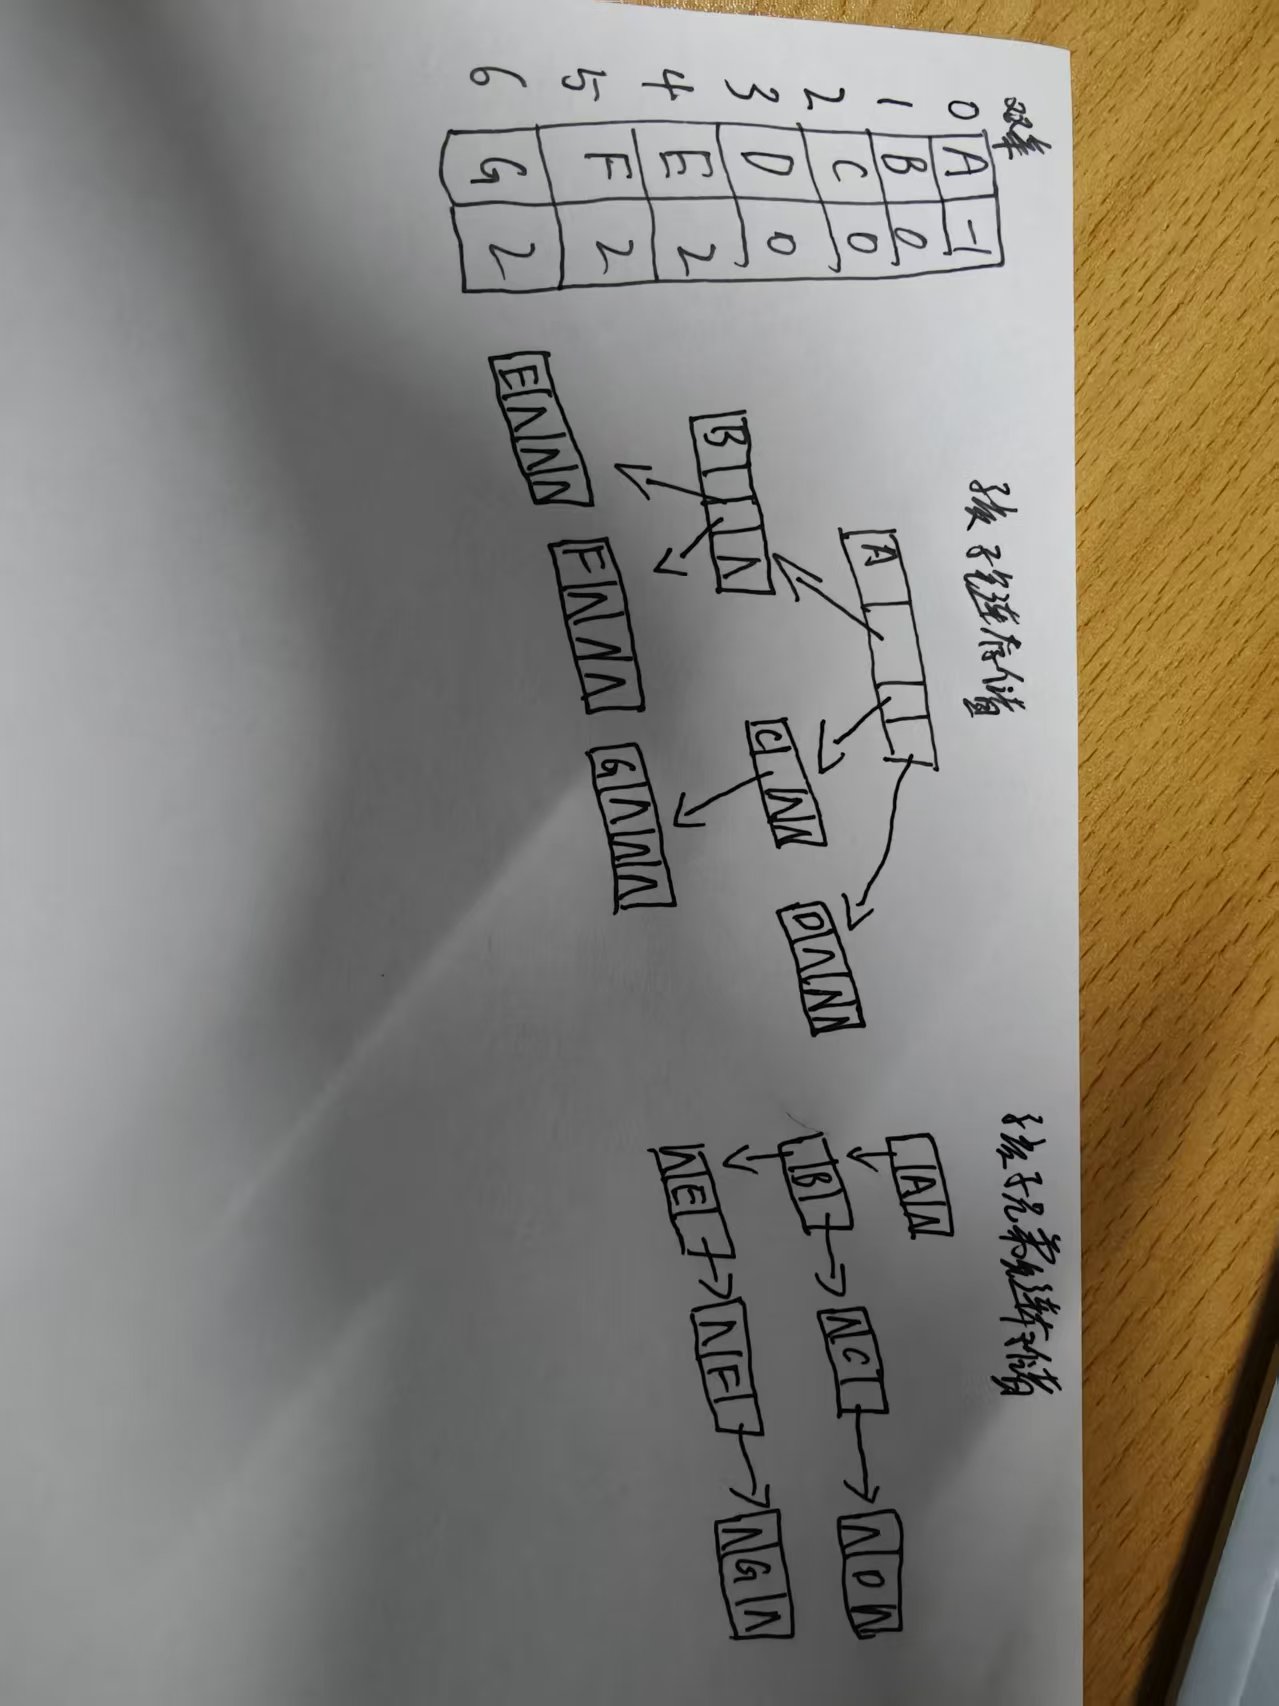 双亲
0 A -1
1 B 0
2 C 0
3 D 0
4 E 2
5 F 2
6 G 2
孩子链存储
A
B Λ
C Λ Λ
D Λ Λ Λ
E Λ Λ Λ
F Λ Λ Λ
G Λ Λ Λ
孩子兄弟链存储
A Λ
B
Λ C
Λ D Λ
Λ E
Λ F
Λ G Λ